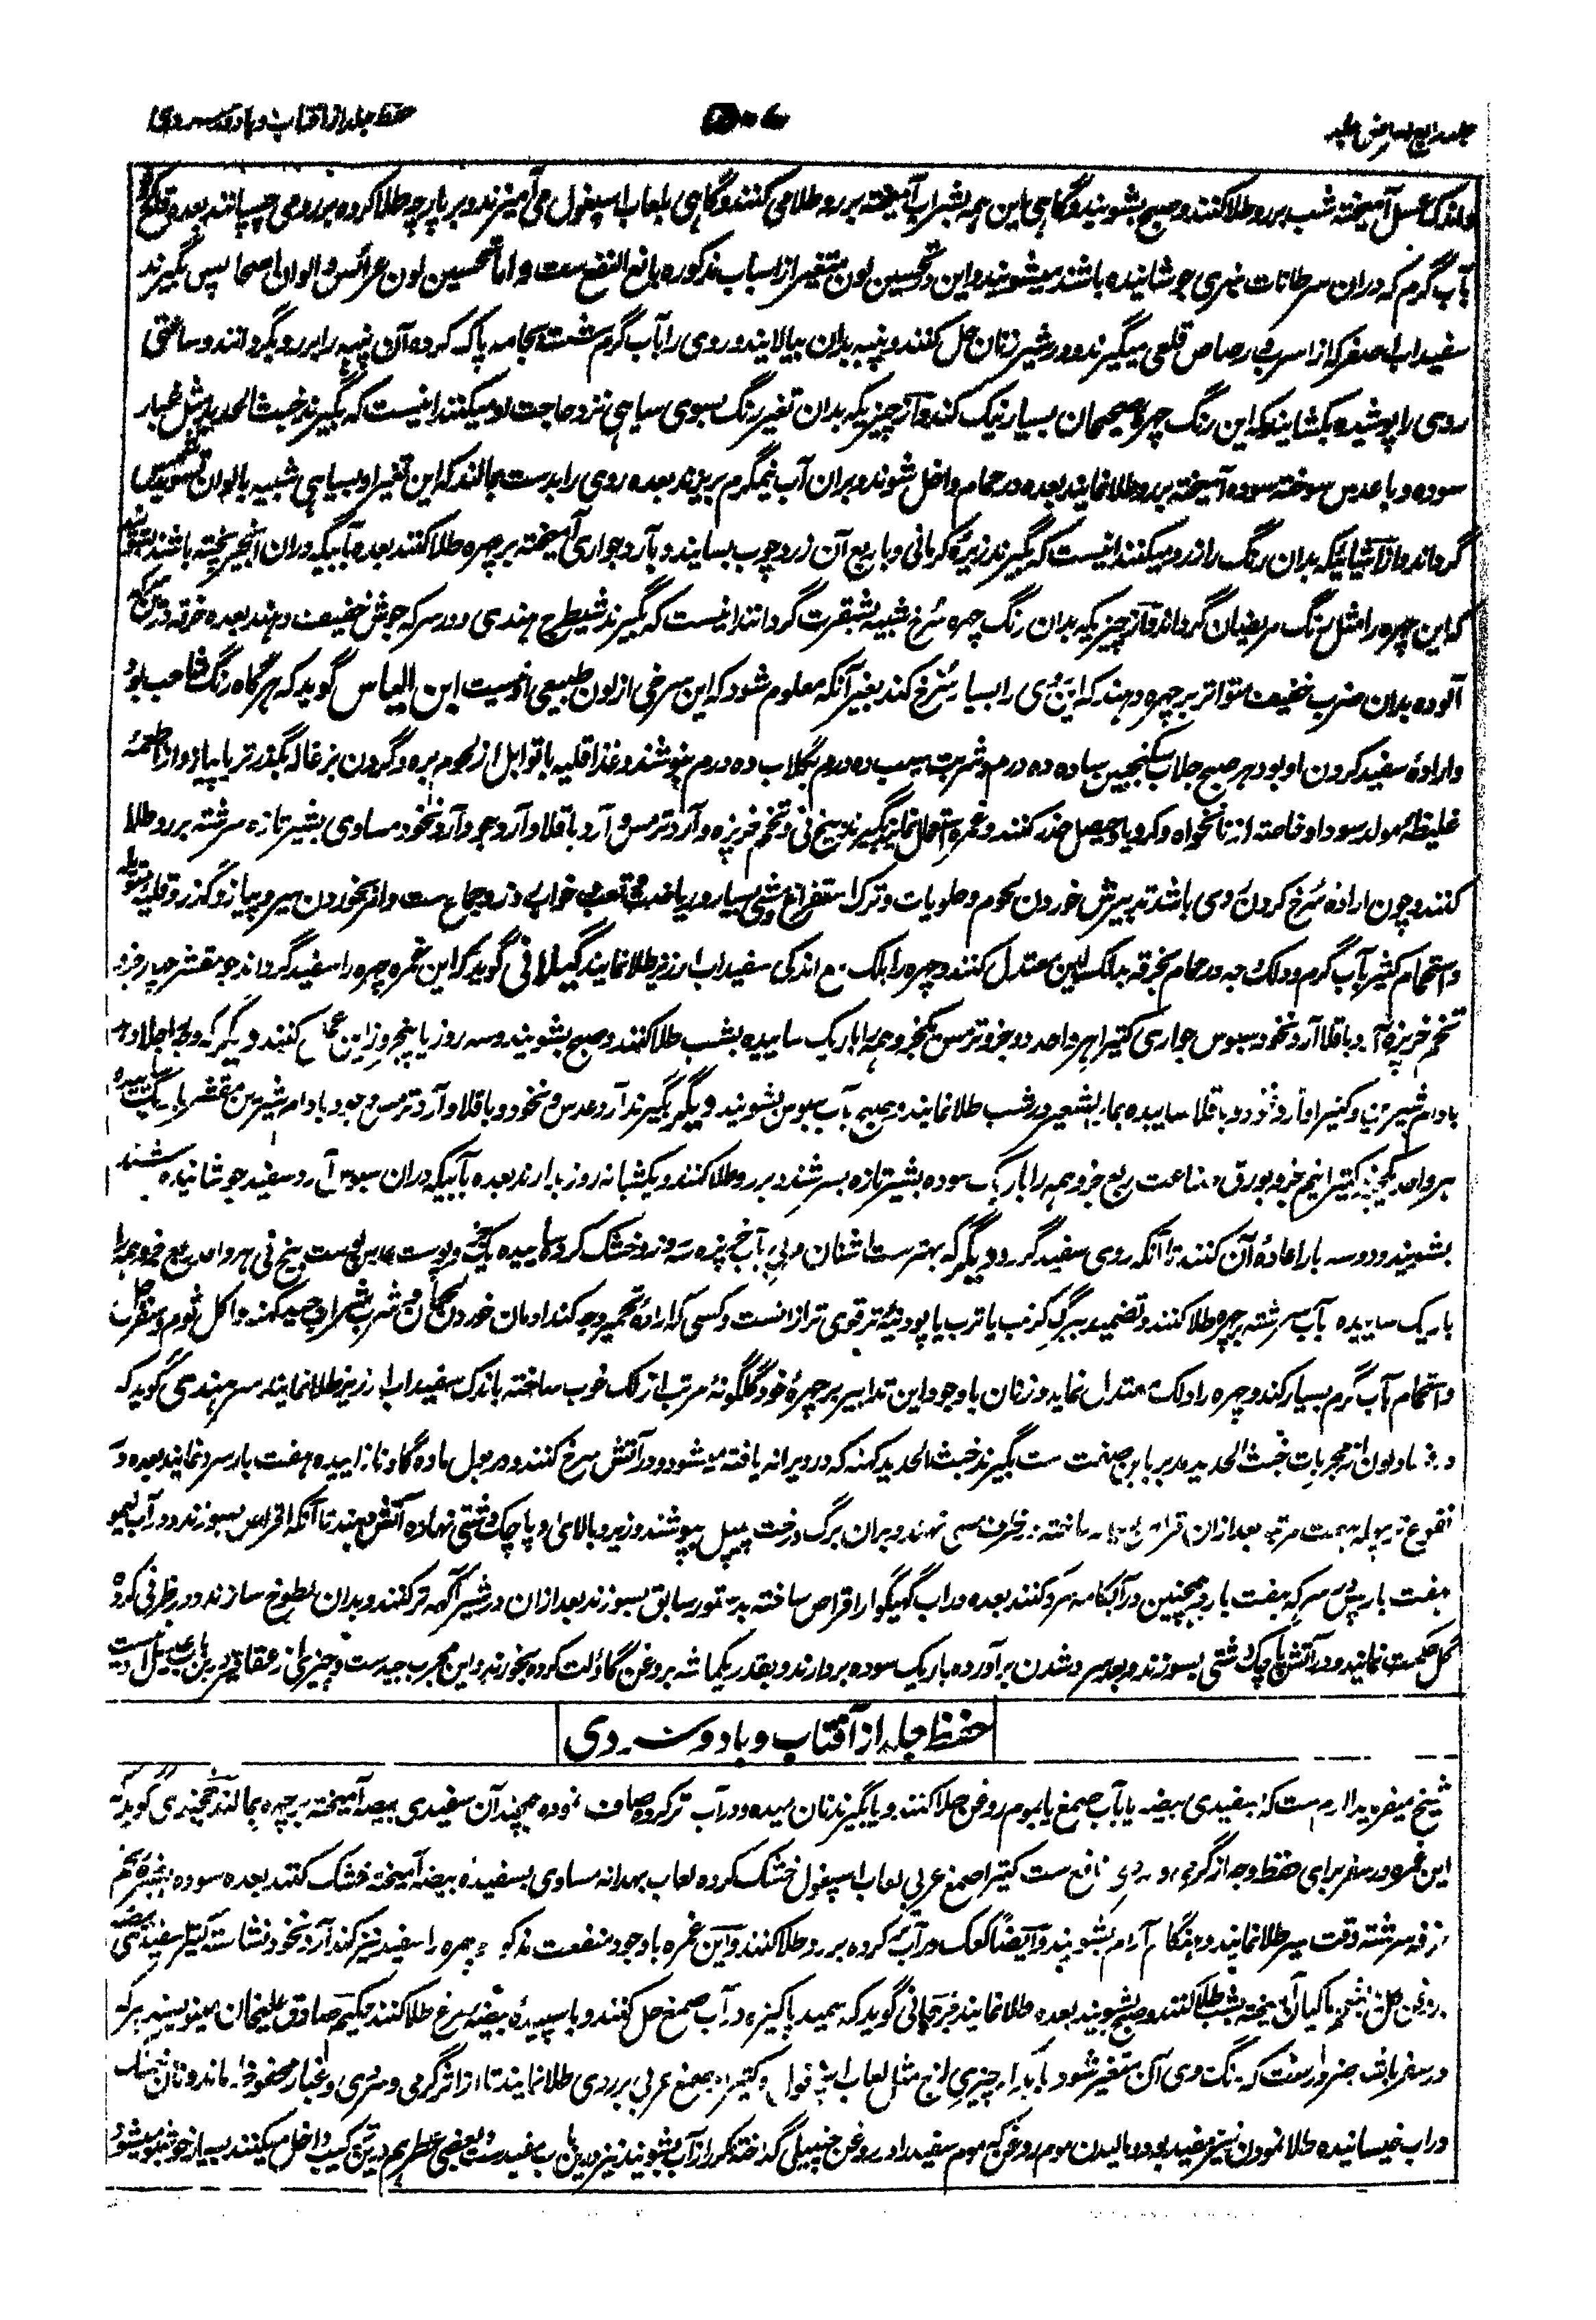 حفظ جلد از آفتاب و باد و سردی
واندک عسل آمیخته شب بررو طلا کنند و صبح بشویند و گاهی این همه بشراب آمیخته بررو طلا می کنند و گاهی بلعاب اسپغول می آمیزند و بر پارچه طلا کرده برروی چسپانند بعده
بآب گرم که دران سرطانات نهری جوشانیده باشند میشویند و این در تحسین لون متغیر از اسباب مذکوره بالغ النفع ست و اما تحسین لون عرائس و الوان اصحا پس بگیرند
سفیداب اصفر که از اسرب و رصاص قلعی میگیرند و در شیر زنان حل کنند و پنبه بدان بیالایند و روی را بآب گرم شسته و بجامه پاک کرده آن پنبه را بررو بگردانند و ساعتی
روی را پوشیده بکشایند که این رنگ چهره صحیحان بسیار نیک کند و آن چیزیکه بدان تغیر رنگ بسوی سیاهی نزد حاجت او میکنند اینست که بگیرند خبث الحدید مثل غبار
سوده و با عدس سوخته سوده آمیخته بررو طلا نمایند بعده در حمام داخل شوند و بران آب نیمگرم بریزند بعده روی را بدست بمالند که این تغیر او بسیاهی شبیه بالوان
گرداند و از اشیائیکه بدان رنگ را زرد میکنند اینست که بگیرند زیره کرمانی و با ربع آن زردچوب بسایند و بآرد جواری آمیخته بر چهره طلا کنند بعده بآبیکه دران انجیر پخته باشند
که این چهره را مثل رنگ مریضان گرداند و از چیزیکه بدان رنگ چهره سرخ شبیه بشقرت گردانند اینست که بگیرند شیطرج هندی و در سرکه جوش خفیف دهند بعده خرقه
آلوده بدان ضرب خفیف متواتر بر چهره دهند که این روی را بسیار سرخ کند بغیر آنکه معلوم شود که این سرخی از لون طبیعی او نیست ابن الیاس گوید که هرگاه رنگ
و اراده سفید کردن او بود هر صبح جلاب سکنجبین ساده ده درم و شربت سیب ده درم بگلاب ده درم بنوشند و غذا قلیه با توابل از لحوم بره و گردن بزغاله بگذر تر یا پیاز و از اطعمه
غلیظه مولد سودا و خاصته از نانخواه و کرویا و بصل حذر کنند و بگیرند بیخ نی و تخم خرپزه و آرد ترمس و آرد باقلا و آرد جو و آرد نخود مساوی بشیر تازه سرشته بررو طلا
کنند و چون اراده سرخ کردن روی باشد تدبیرش خوردن لحوم و حلویات و ترک استفراغ و مشی بسیار و ریاضت و تعب و خوابی و جماع ست و از خوردن سیر و پیاز و گذر و
و استحمام کثیر بآب گرم و دلک وجه در حمام بخرقه بدلک لین معتدل کنند و چهره را بلک مع اندکی سفیداب ارزیز طلا نمایند گیلانی گوید که این غمره چهره را سفید گرداند جو مقشر
تخم خرپزه آرد باقلا آرد نخود سبوس جواری کتیرا هر واحد دو جزو ترمس یکجزو همه را باریک ساییده بشب طلا کنند و صبح بشویند و سه روز یا پنجروز این عمل کنند
بادام شیرین و کتیرا و آرد نخود و باقلا ساییده بماء الشعیر در شب طلا نمایند و صبح بآب سبوس بشویند دیگر بگیرند آرد عدس و نخود و باقلا و آرد ترمس و جو و بادام شیرین مقشر
هر واحد یکجزو کتیرا نیم جزو بورق ربع جزو همه را باریک سوده بشیر تازه بسرشند و بررو طلا کنند و یکشبانه روز بدارند بعده بآبیکه دران سبوس آرد سفید جوشانیده باشند
بشویند و دو سه بار اعاده آن کنند تا آنکه روی سفید گردد دیگر که بهترست اشنان مربی بآب خرپزه سه روز و خشک کرده ساییده و پوست بیخ نی هر واحد ربع جزو همه را
باریک ساییده بآب سرشته بر چهره طلا کنند و تضمید ببرگ کرنب یا ترب یا پودینه تر قوی تر ازانست و کسی که اراده تحمیر وجه کند
و استحمام بآب گرم بسیار کند و چهره را دلک معتدل نماید و زنان با وجود این تدابیر بر چهره خود گلگونه مرتب از لک خوب ساخته باندک سفیداب ارزیز طلا نمایند سرهندی گوید که
از مجربات خبث الحدید مدبر باین صفت ست بگیرند خبث الحدید کهنه که در ویرانه یافته میشود و در آتش سرخ کنند و در بول ماده گاو نازاییده هفت بار سرد نمایند بعده
هفت مرتبه بعد ازان قرص ساخته در ظرف مسی نهند و بران برگ درخت پیپل بپوشند و زیر و بالای او پاچک دشتی نهاده آتش دهند تا آنکه اقراص بسوزند و در آب لیمو
هفت بار پس سرکه هفت بار و همچنین در آبکامه سرد کنند بعده در آب گهیگوار اقراص ساخته بدستور سابق بسوزند بعد ازان در شیر آکهه تر کنند و بدان مطبوخ سازند و در ظرفی کرده
گل حکمت نمایند و در آتش پاچک دشتی بسوزند و بعد سرد شدن برآورده باریک سوده بردارند و بقدر یکماشه بروغن گاو لت کرده بخورند و این مجرب جیدست
حفظ جلد از آفتاب و باد و سردی
شیخ میفرماید لازم ست که سفیدی بیضه یا بآب صمغ یا بموم روغن طلا کنند و یا بگیرند نان میده و در آب تر کرده صاف نموده همچند آن سفیدی بیضه آمیخته بر چهره بمالند خجندی گوید که
این غمره در سفر برای حفظ وجه از گرمی و سردی نافع ست کتیرا صمغ عربی لعاب اسپغول خشک کرده لعاب بهدانه مساوی بسفیده بیضه آمیخته خشک کنند بعده سوده
سرشته وقت سیر طلا نمایند و هنگام آرام بشویند و ایضا کعک در آب تر کرده بررو طلا کنند و این غمره با وجود منفعت مذکور چهره را سفید نیز کند آرد نخود نشاسته کتیرا
طلا کنند و صبح بشویند بعده طلا نمایند جرجانی گوید که سمید پاکیزه در آب صمغ حل کنند و با سپیده بیضه مرغ طلا کنند حکیم صادق علیخان مینویسند هرکه
در سفر باشد ضرورست که رنگ روی آن متغیر شود باید که چیزی لزج مثل لعاب اسپغول و کتیرا و صمغ عربی بر روی طلا نمایند تا از اثر گرمی و سردی و غبار محفوظ ماند و نان خشک
در آب خیسانیده طلا نمودن نیز مفید بود و مالیدن موم روغن که موم سفید را در روغن چنبیلی گداخته مکرر از آب بشویند نیز درین باب مفیدست و بعضی عطر هم درین ترکیب داخل میکنند بسیار خوشبو میشود